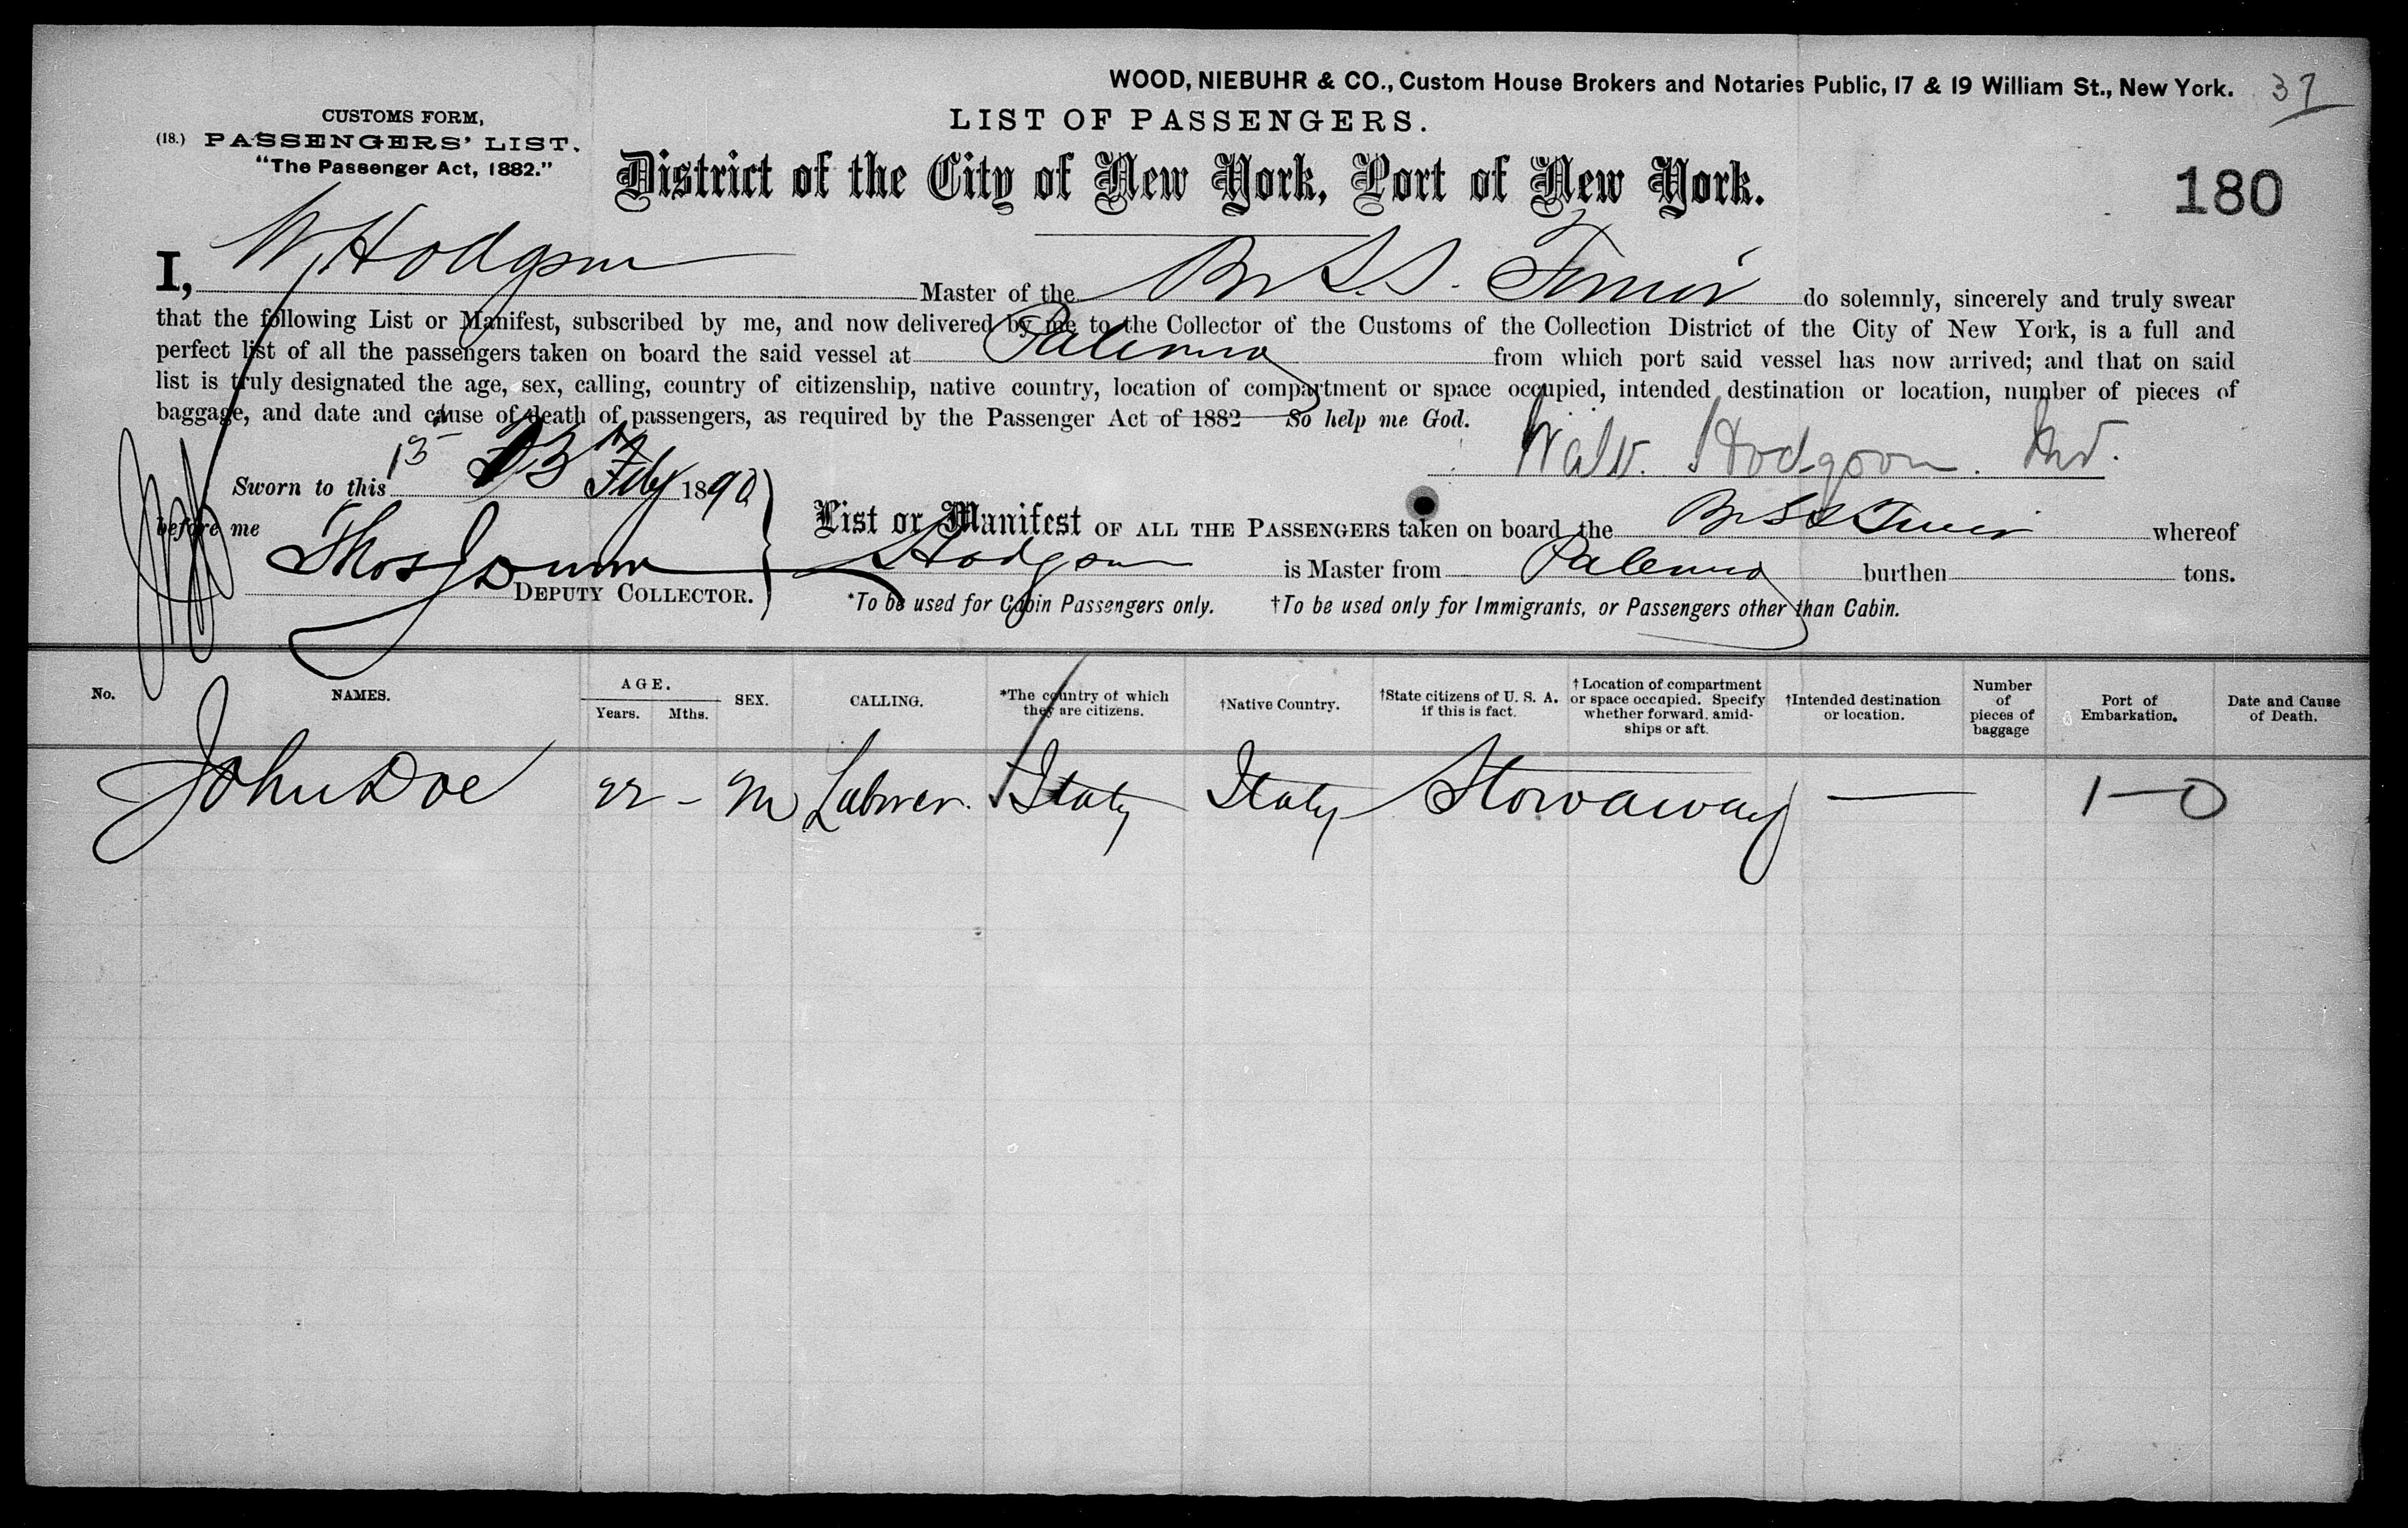 WOOD, NIEBUHR & CO., Custom House Brokers and Notaries Public, 17 & 19 William St., New York. 37
CUSTOMS FORM,
(18.) PASSENGERS' LIST.
"The Passenger Act, 1882."
LIST OF PASSENGERS.
District of the City of New York, Port of New York.
180
I, W. Hodgson Master of the Br S.S. do solemnly, sincerely and truly swear
that the following List or Manifest, subscribed by me, and now delivered by me to the Collector of the Customs of the Collection District of the City of New York, is a full and
perfect list of all the passengers taken on board the said vessel at Palermo from which port said vessel has now arrived; and that on said
list is truly designated the age, sex, calling, country of citizenship, native country, location of compartment or space occupied, intended destination or location, number of pieces of
baggage, and date and cause of death of passengers, as required by the Passenger Act of 1882 So help me God.
Hodgson
Sworn to this Feby 1890
before me
Thos
DEPUTY COLLECTOR.
List or Manifest OF ALL THE PASSENGERS taken on board the Br SS whereof
Hodgson is Master from Palermo burthen tons.
*To be used for Cabin Passengers only. †To be used only for Immigrants, or Passengers other than Cabin.
No.
NAMES.
AGE.
Years. Mths.
SEX.
CALLING.
*The country of which
they are citizens.
†Native Country.
†State citizens of U. S. A.
if this is fact.
†Location of compartment
or space occupied. Specify
whether forward, amid-
ships or aft.
†Intended destination
or location.
Number
of
pieces of
baggage
Port of
Embarkation.
Date and Cause
of Death.
John Doe 22 - M Laborer. Italy Italy Stowaway — 1—0